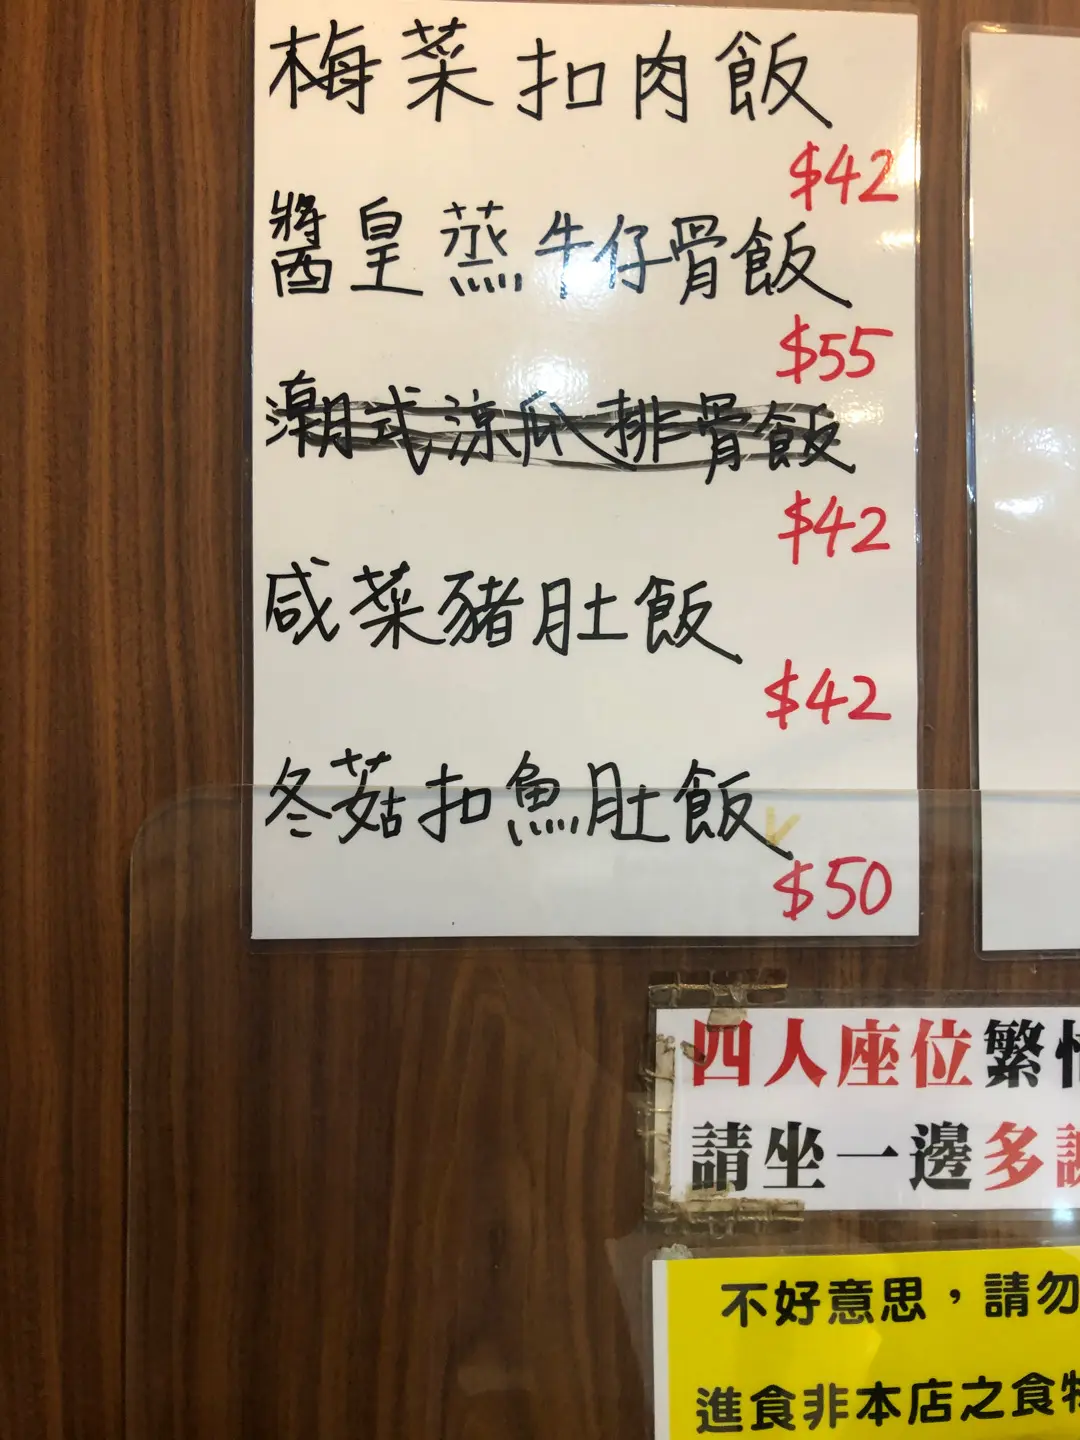 梅菜扣肉飯
$42
醬皇蒸牛仔骨飯
$55
潮式涼瓜排骨飯
$42
咸菜豬肚飯
$42
冬菇扣魚肚飯
$50
四人座位繁忙
請坐一邊多謝
不好意思，請勿
進食非本店之食物